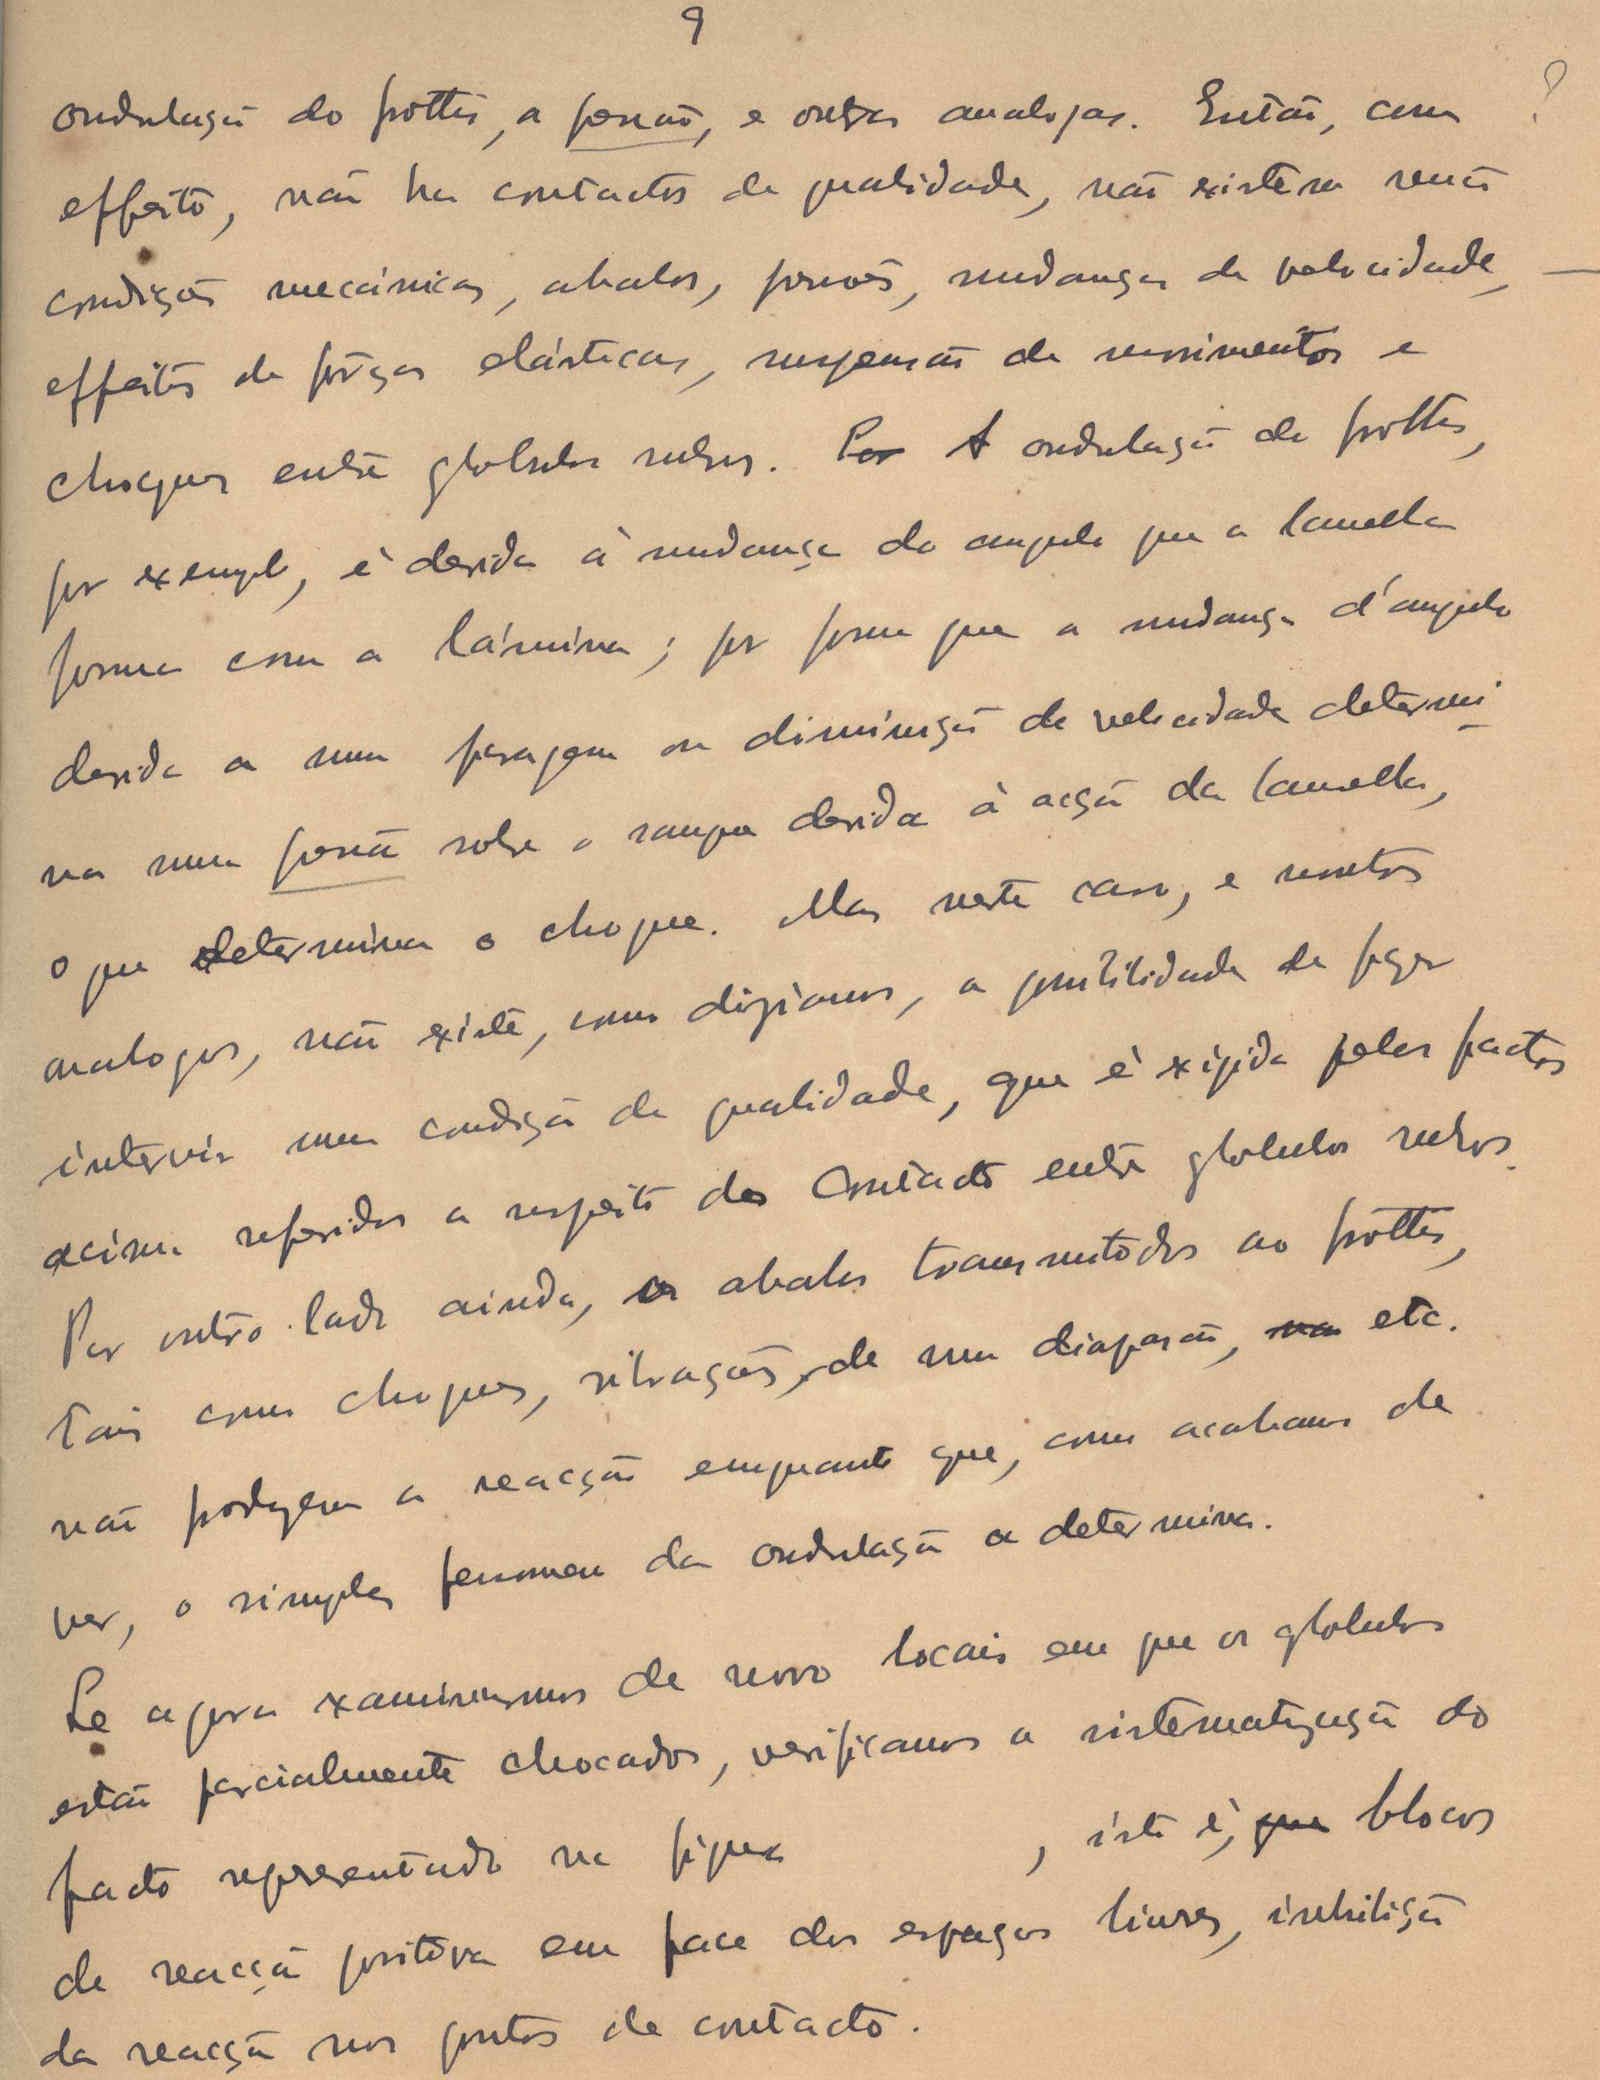 9
ondulação do frottis, a pressão, e outras analogas. Então, com ?
effeito, não ha contactos de qualidade, não existem senão
condições mecánicas, abalos, pressões, mudanças de velocidade,
effeitos de fôrças elásticas, suspensão de movimentos e
choques entre globulos rubros. Por A ondulação do frottis,
por exemplo, é devida à mudança do angulo que a lamella
forma com a lámina; por forma que a mudança d'angulo
devida a uma paragem ou diminuição de velocidade determi
na uma pressão sobre o sangue devida à acção da lamella,
o que determina o choque. Mas neste caso, e noutros
analogos, não existe, como diziamos, a possibilidade de fazer
intervir uma condição de qualidade, que é exigida pelos factos
acima referidos a respeito dos contactos entre globulos rubros.
Por outro lado ainda, os abalos transmitidos ao frottis,
tais como choques, vibrações de um diapasão, etc.
não produzem a reacção emquanto que, como acabamos de
ver, o simples fenomeno da ondulação a determina.
Se agora examinarmos de novo locais em que os globulos
estão parcialmente chocados, verificamos a sistematização do
facto representado na figura , isto é, que blocos
de reacção positiva em face dos espaços livres, inhibição
da reacção nos pontos de contacto.